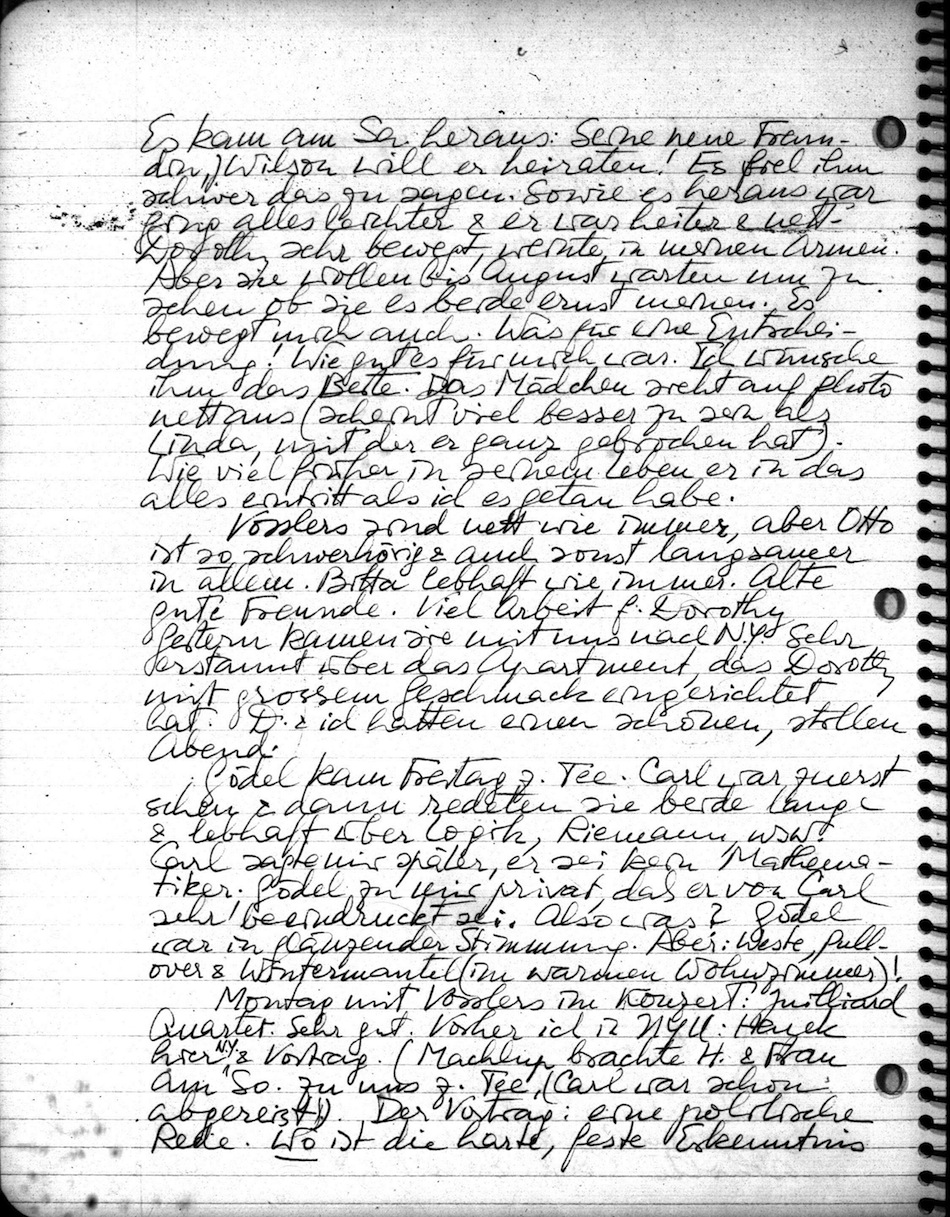 Es kam am Sa. heraus: Seine neue Freun-
din, J Wilson will er heiraten! Es fiel ihm
schwer das zu sagen. Sowie es heraus war
ging alles leichter & er war heiter & nett.
Dorothy sehr bewegt, weinte in meinen Armen.
Aber sie wollen bis August warten um zu
sehen ob sie es beide ernst meinen. Es
bewegt mich auch. Was für eine Entschei-
dung! Wie gut es für mich war. Ich wünsche
ihm das Beste. Das Mädchen sieht auf photo
nett aus (scheint viel besser zu sein als
Linda, mit der er ganz gebrochen hat).
Wie viel früher in seinem Leben er in das
alles eintritt als ich es getan habe.
Vosslers sind nett wie immer, aber Otto
ist so schwerhörig & auch sonst langsamer
in allem. Bitta lebhaft wie immer. Alte
gute Freunde. Viel Arbeit f. Dorothy
Gestern kamen sie mit uns nach N.Y. Sehr
erstaunt über das Apartment, das Dorothy
mit grossem Geschmack eingerichtet
hat. D. & ich hatten einen schönen, stillen
Abend.
Gödel kam Freitag z. Tee. Carl war zuerst
scheu & dann redeten sie beide lang
& lebhaft über Logik, Riemann, usw.
Carl sagte mir später, er sei kein Mathema-
tiker. Gödel zu mir privat, das er von Carl
sehr beeindruckt sei. Also was? Gödel
war in glänzender Stimmung. Aber: Weste, Pull-
over & Wintermantel (im warmen Wohnzimmer)!
Montag mit Vosslers im Konzert: Juilliard
Quartet. Sehr gut. Vorher ich in NYU: Hayek
hier N.Y. & Vortrag. (Machlup brachte H. & Frau
am So. zu uns z. Tee, (Carl war schon
abgereist)). Der Vortrag: eine politische
Rede. Wo ist die harte, feste Erkenntnis